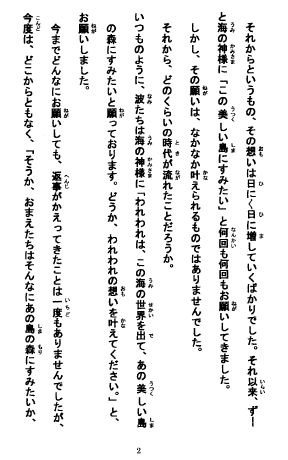 それからというもの、その想いは日に日に増していくばかりでした。それ以来、ずー
っと海の神様に「この美しい島にすみたい」と何回も何回もお願いしてきました。
しかし、その願いは、なかなか叶えられるものではありませんでした。
それから、どのくらいの時代が流れたことだろうか。
いつものように、波たちは海の神様に「われわれは、この海の世界を出て、あの美しい島
の森にすみたいと願っております。どうか、われわれの想いを叶えてください。」と、
お願いしました。
今までどんなにお願いしても、返事がかえってきたことは一度もありませんでしたが、
今度は、どこからともなく、「そうか、おまえたちはそんなにあの島の森にすみたいか、
2